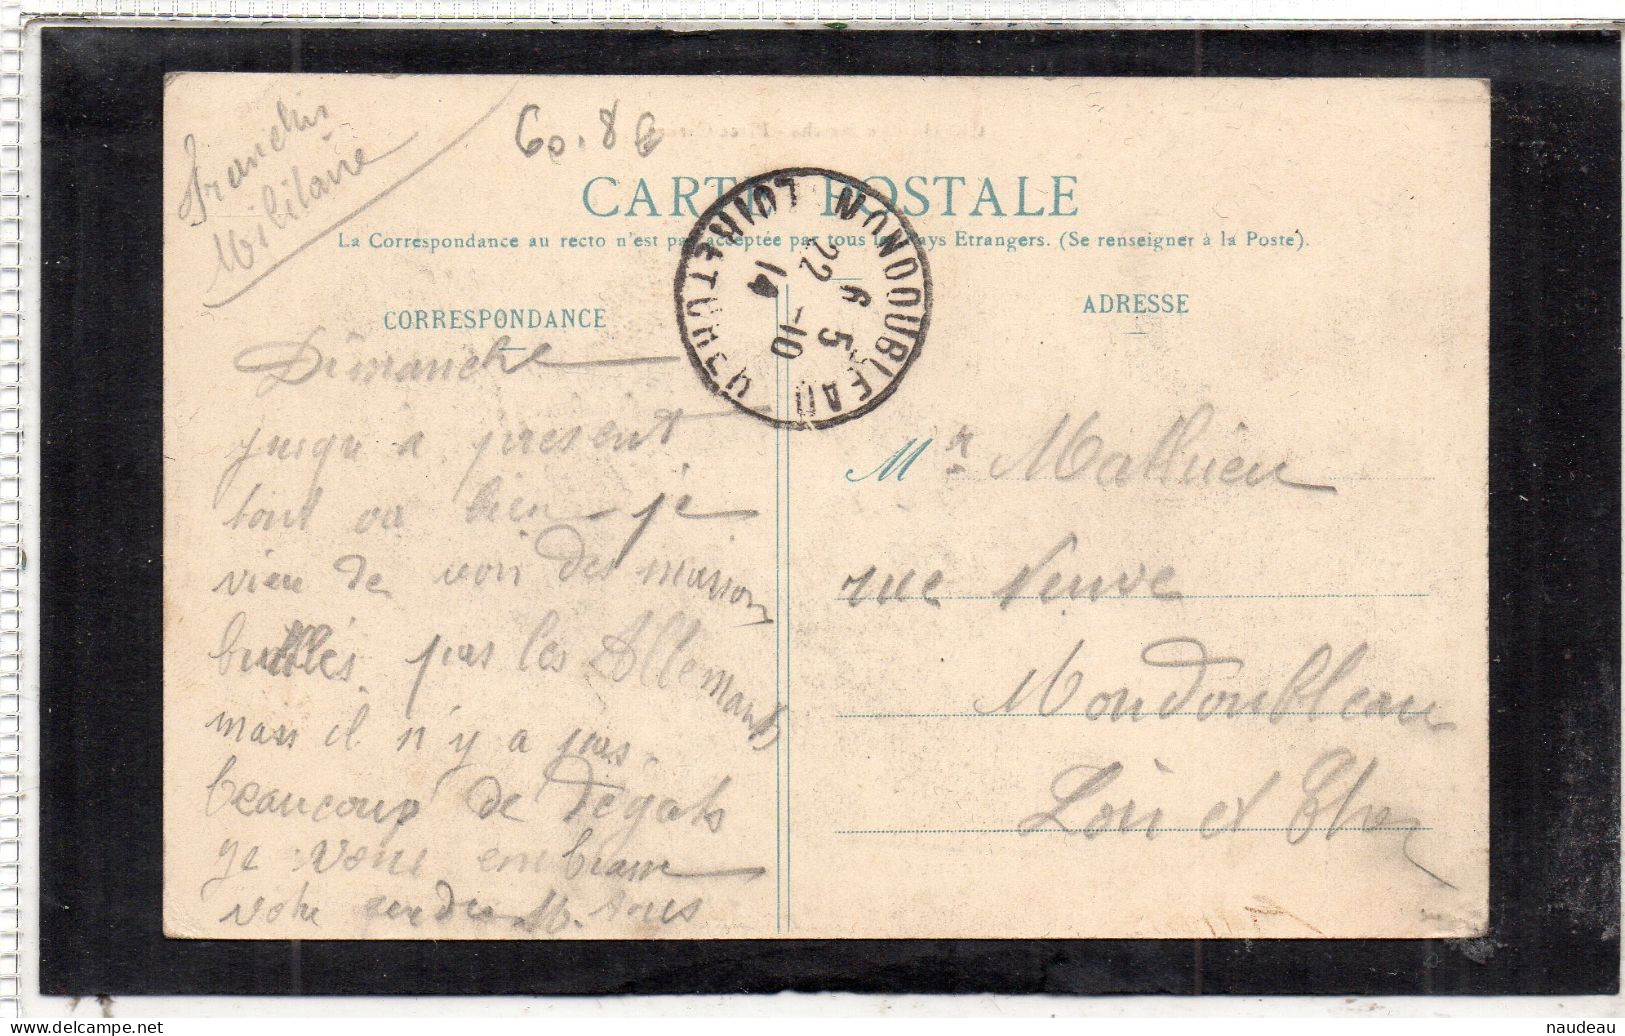 Franchis
Militaire
60.8
CARTE POSTALE
La Correspondance au recto n'est pas acceptée par tous les pays Etrangers. (Se renseigner à la Poste).
MONDOUBLEAU
LOIR-ET-CHER
22-10
14
CORRESPONDANCE
Dimanche
jusqu'a present
tout va bien je
vien de voir des maison
bullés par les Allemants
mais il n'y a pas
beaucoup de degats
je vous embrasse
votre M. tous
ADRESSE
Mr Mathieu
rue Neuve
Mondoubleau
Loir et Cher
naudeau